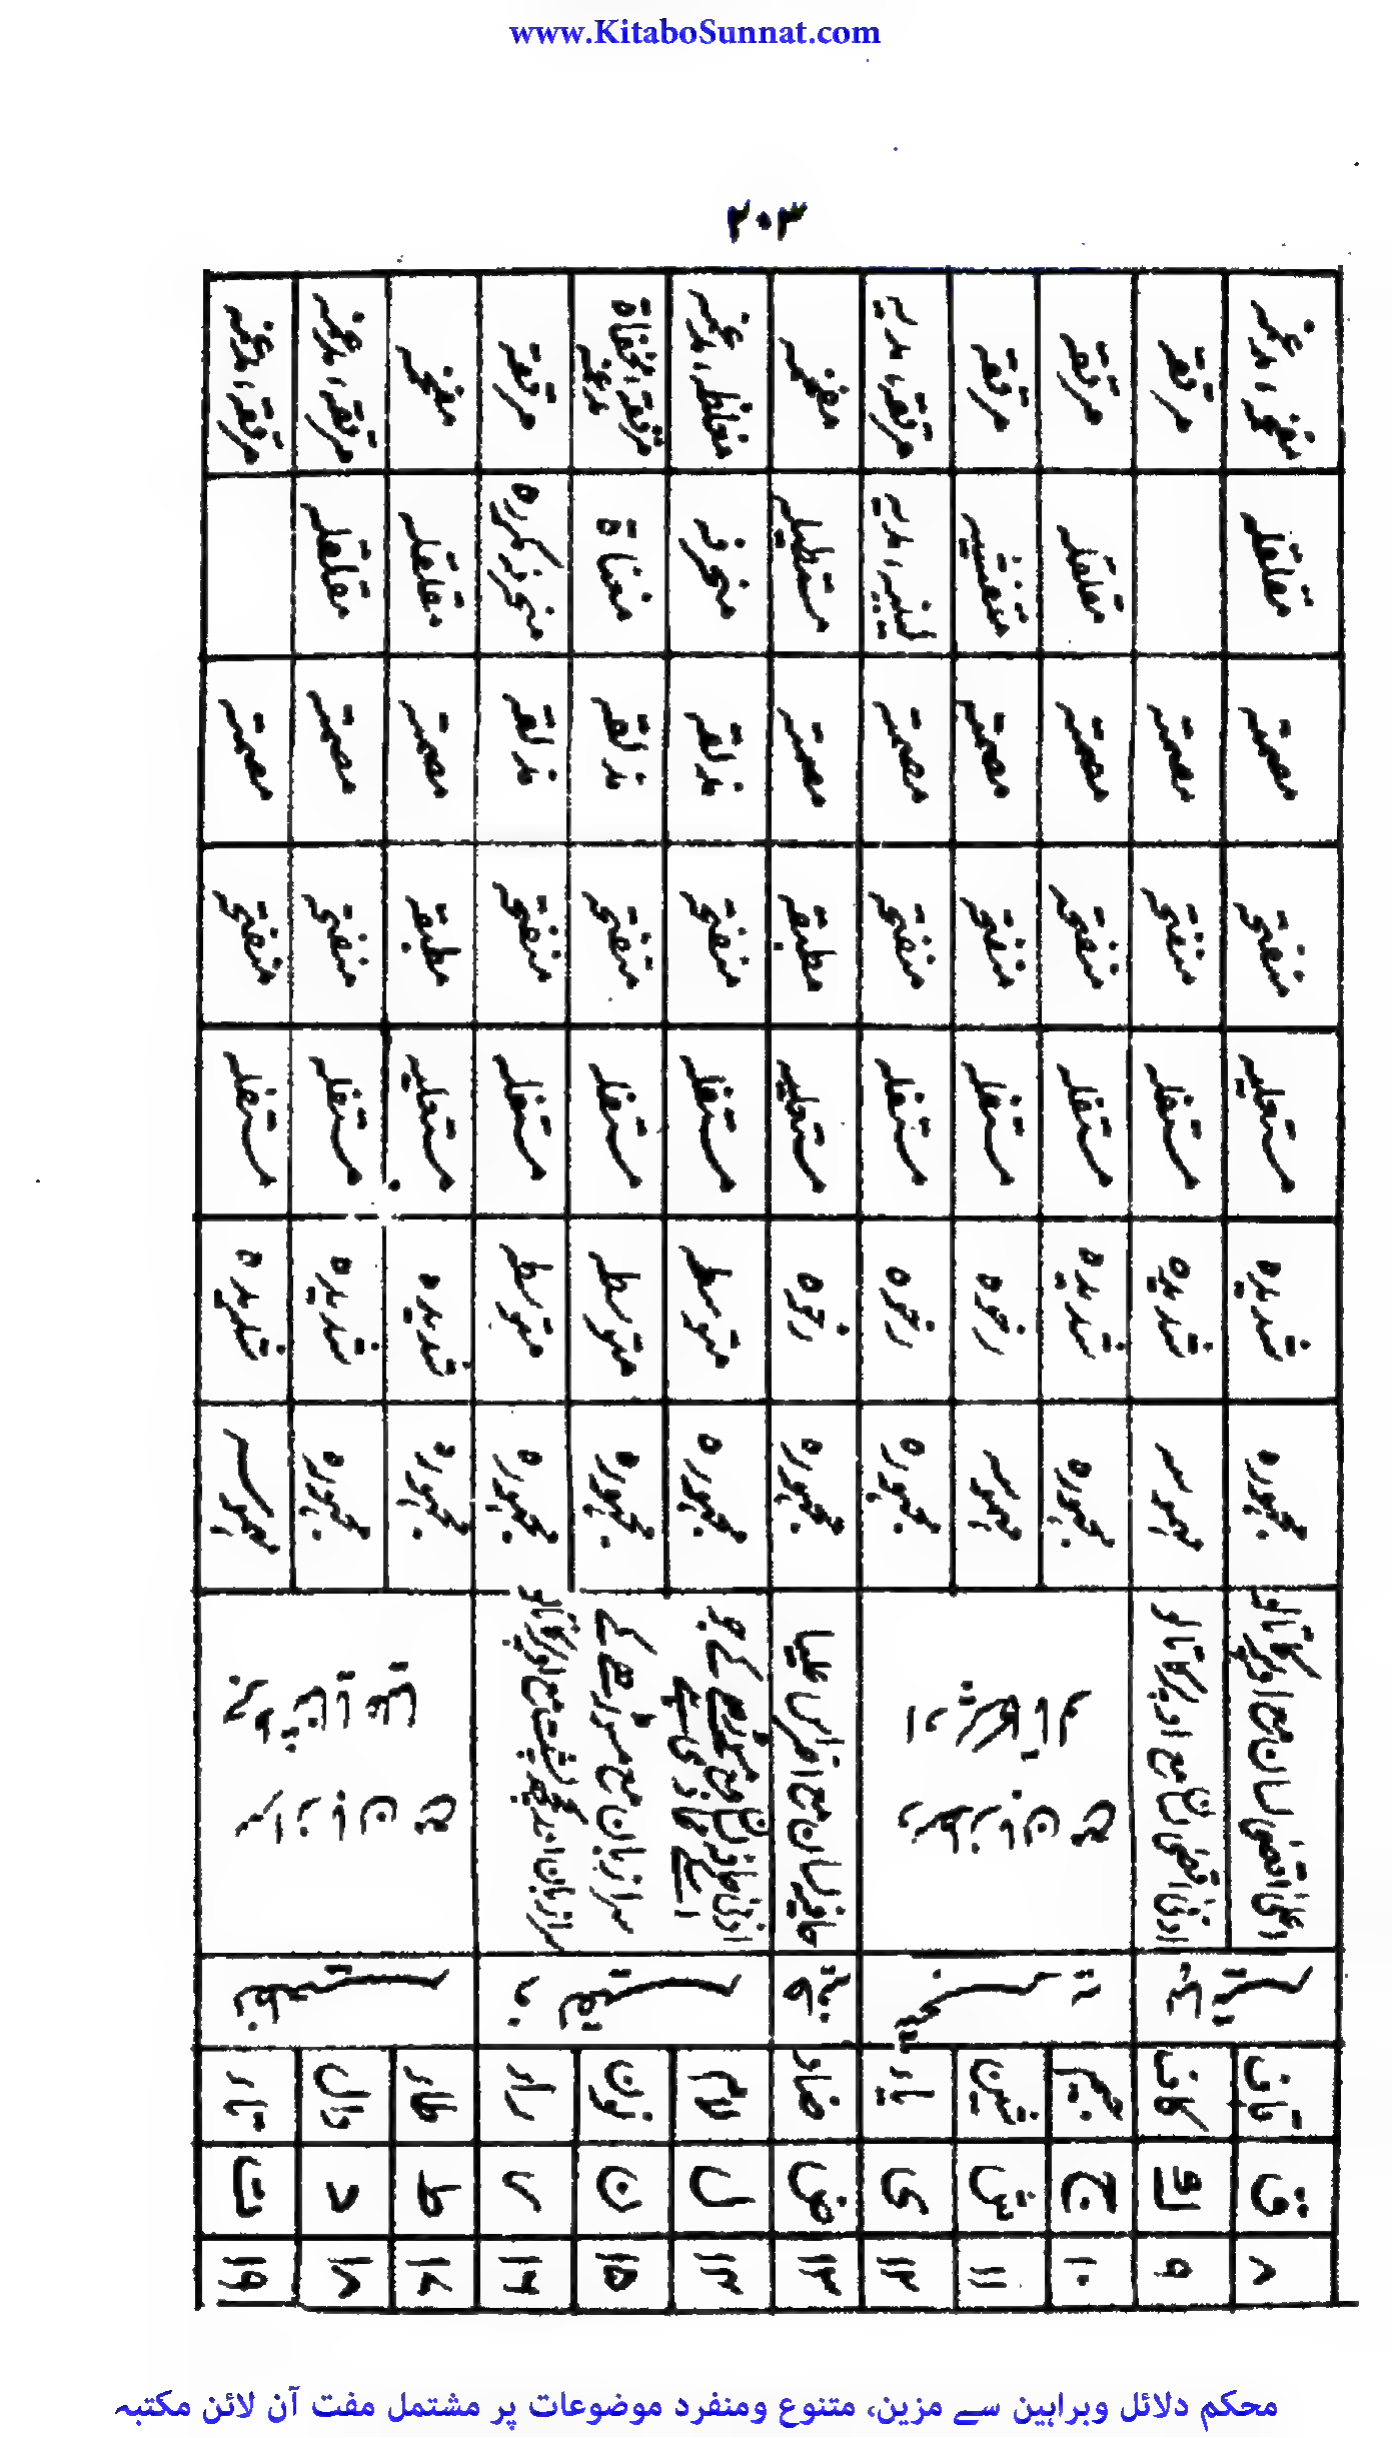 www.KitaboSunnat.com
۲۰۳
۸ ق قاف لہاتیہ اعلیٰ اقصٰی لسان مع اوپر کا تالو مجہورہ شدیدہ مستعلیہ منفتحہ مصمتہ مقلقلہ مفخمہ، مدغمہ
۹ ک کاف ادنیٰ اقصٰی لسان مع اوپر کا تالو مہموسہ شدیدہ مستفلہ منفتحہ مصمتہ مرققہ
۱۰ ج جیم شجریہ وسط زبان مع اوپر کا تالو مجہورہ شدیدہ مستفلہ منفتحہ مصمتہ مقلقلہ مرققہ
۱۱ ش شین مہموسہ رخوہ مستفلہ منفتحہ مصمتہ متفشیہ مرققہ
۱۲ ی یاء مجہورہ رخوہ مستفلہ منفتحہ مصمتہ لینیہ، مدیہ مرققہ، مدیہ
۱۳ ض ضاد حافیہ حافہ لسان مع اضراس علیا مجہورہ رخوہ مستعلیہ مطبقہ مصمتہ مستطیلہ مفخمہ
۱۴ ل لام ادنیٰ حافہ لسان مع مسوڑھے کے جو اسکے محاذ میں ہے مجہورہ متوسطہ مستفلہ منفتحہ مذلقہ منحرفہ مغلظہ، مدغمہ
۱۵ ن نون سرا زبان مع مسوڑھے کے مجہورہ متوسطہ مستفلہ منفتحہ مذلقہ مغناۃ مرققہ، مخفاۃ مدغمہ
۱۶ ر راء سرا زبان اندر کچھ پشت مع اوپر کا تالو مجہورہ متوسطہ مستفلہ منفتحہ مذلقہ منحرفہ مکررہ مرققہ
۱۷ ط طاء نطعیہ سرا زبان مع مجہورہ شدیدہ مستعلیہ مطبقہ مصمتہ مقلقلہ مفخمہ
۱۸ د دال مجہورہ شدیدہ مستفلہ منفتحہ مصمتہ مقلقلہ مرققہ، مدغمہ
۱۹ ت تاء مہموسہ شدیدہ مستفلہ منفتحہ مصمتہ مرققہ، مدغمہ
محکم دلائل وبراہین سے مزین، متنوع ومنفرد موضوعات پر مشتمل مفت آن لائن مکتبہ